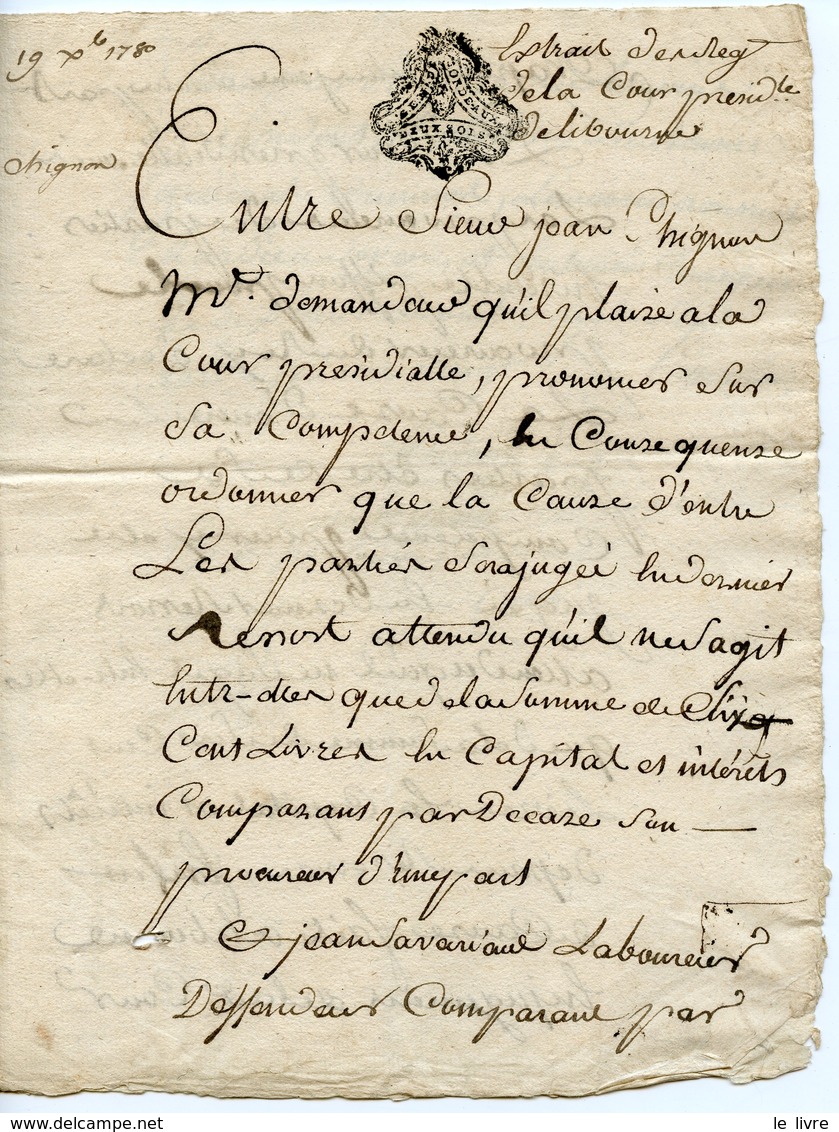 19 Xb 1780
Extrait des Reg
de la Cour presidle
de libourne
chignon
Entre Sieur jean Chignon
Md. demandeur qu'il plaise a la
Cour presidialle, prononcer sur
sa Competence, En Conzequenze
ordonner que la Cauze d'entre
Les parties serajugée Endernier
Ressort attendu qu'il ne sagit
Entr-elles que de la somme de Cinq
Cent Livres En Capital et intérêts
Comparant par Decaze son
procureur d'Unepart
Et jean Savariaud Laboureur
Deffendeur Comparant par
GEN. DE BORDEAUX
DEUX SOLS
le livre